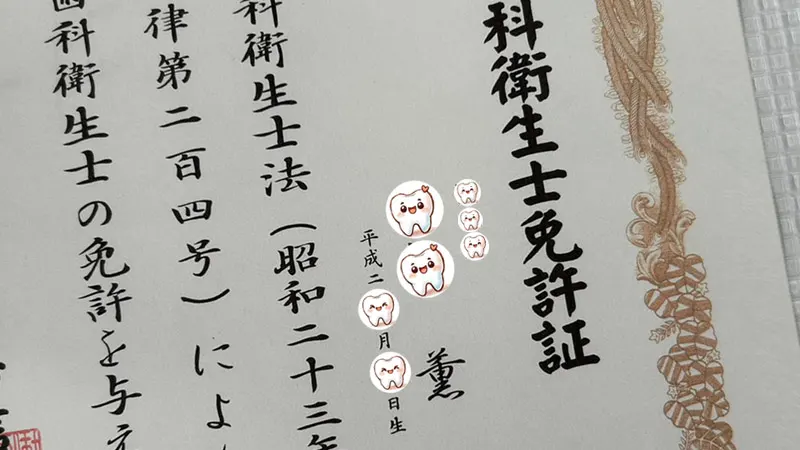 科衛生士免許証
薫
平成二
月
日生
科衛生士法(昭和二十三年
律第二百四号)によ
歯科衛生士の免許を与え